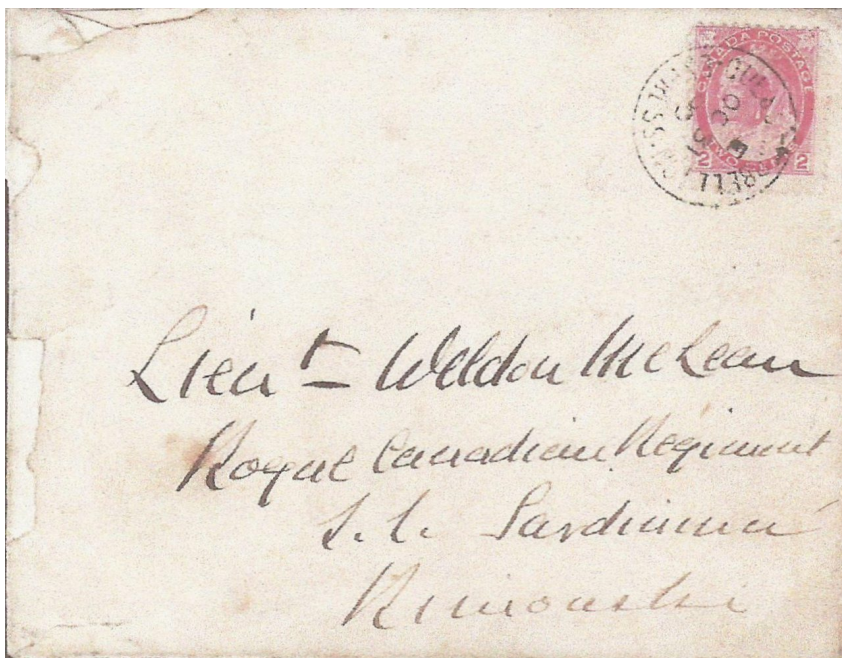 CANADA POSTAGE
2 2
Lieut - Weldon McLean
Royal Canadian Regiment
S.S. Sardinian
Rimouski